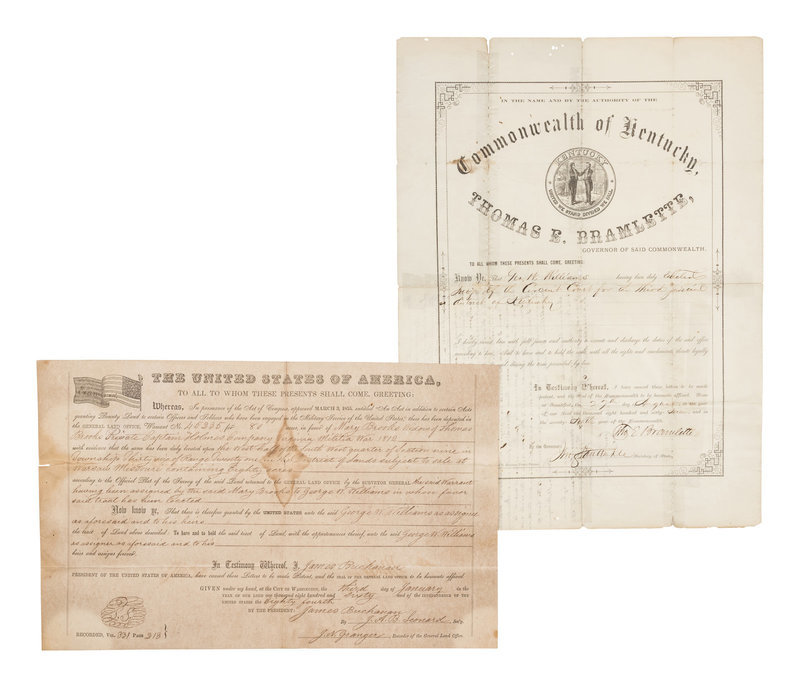 IN THE NAME AND BY THE AUTHORITY OF THE
Commonwealth of Kentucky,
KENTUCKY
UNITED WE STAND DIVIDED WE FALL
THOMAS E. BRAMLETTE,
GOVERNOR OF SAID COMMONWEALTH.
TO ALL WHOM THESE PRESENTS SHALL COME, GREETING:
Know Ye, That Geo. W. Williams having been duly elected
Judge of the Circuit Court for the third judicial
district of Kentucky
I hereby invest him with full power and authority to execute and discharge the duties of the said office
according to law. And to have and to hold the same, with all the rights and emoluments thereunto legally
during the term prescribed by law.
In Testimony Whereof, I have caused these letters to be made
patent, and the seal of the Commonwealth to be hereunto affixed. Done
at Frankfort, the day of in the year
of our Lord one thousand eight hundred and sixty and in
the year of the Commonwealth.
Tho E Bramlette
By the Governor:
Secretary of State.
THE UNITED STATES OF AMERICA,
TO ALL TO WHOM THESE PRESENTS SHALL COME, GREETING:
Whereas, In pursuance of the Act of Congress, approved MARCH 3, 1855, entitled "An Act in addition to certain Acts
granting Bounty Land to certain Officers and Soldiers who have been engaged in the Military Service of the United States," there has been deposited in
the GENERAL LAND OFFICE, Warrant No. 45335 for 80 acres, in favor of Mary Brooks Widow of Thomas
Brooks Private Captain Holmes Company Virginia Militia War 1812
with evidence that the same has been duly located upon the West half of the South West quarter of Section nine in
Township Thirty one of Range Twenty one in the District of Lands subject to sale at
Warsaw Missouri containing Eighty acres
according to the Official Plat of the Survey of the said Land returned to the GENERAL LAND OFFICE by the SURVEYOR GENERAL the said Warrant
having been assigned by the said Mary Brooks to George W. Williams in whose favor
said tract has been located
Now know ye, That there is therefore granted by the UNITED STATES unto the said George W Williams as assignee
as aforesaid and to his heirs
the tract of Land above described: To have and to hold the said tract of Land with the appurtenances thereof, unto the said George W. Williams
as assignee as aforesaid and to his
heirs and assigns forever.
In Testimony Whereof, I, James Buchanan
PRESIDENT OF THE UNITED STATES OF AMERICA, have caused these Letters to be made Patent, and the SEAL OF THE GENERAL LAND OFFICE to be hereunto affixed.
GIVEN under my hand, at the CITY OF WASHINGTON, the third day of January in the
YEAR OF OUR LORD one thousand eight hundred and Sixty and of the INDEPENDENCE OF THE
UNITED STATES the Eighty fourth
BY THE PRESIDENT: James Buchanan
By J. A. B. Leonard Sec'y.
J. N. Granger, Recorder of the General Land Office.
RECORDED, Vol. 331 Page 218